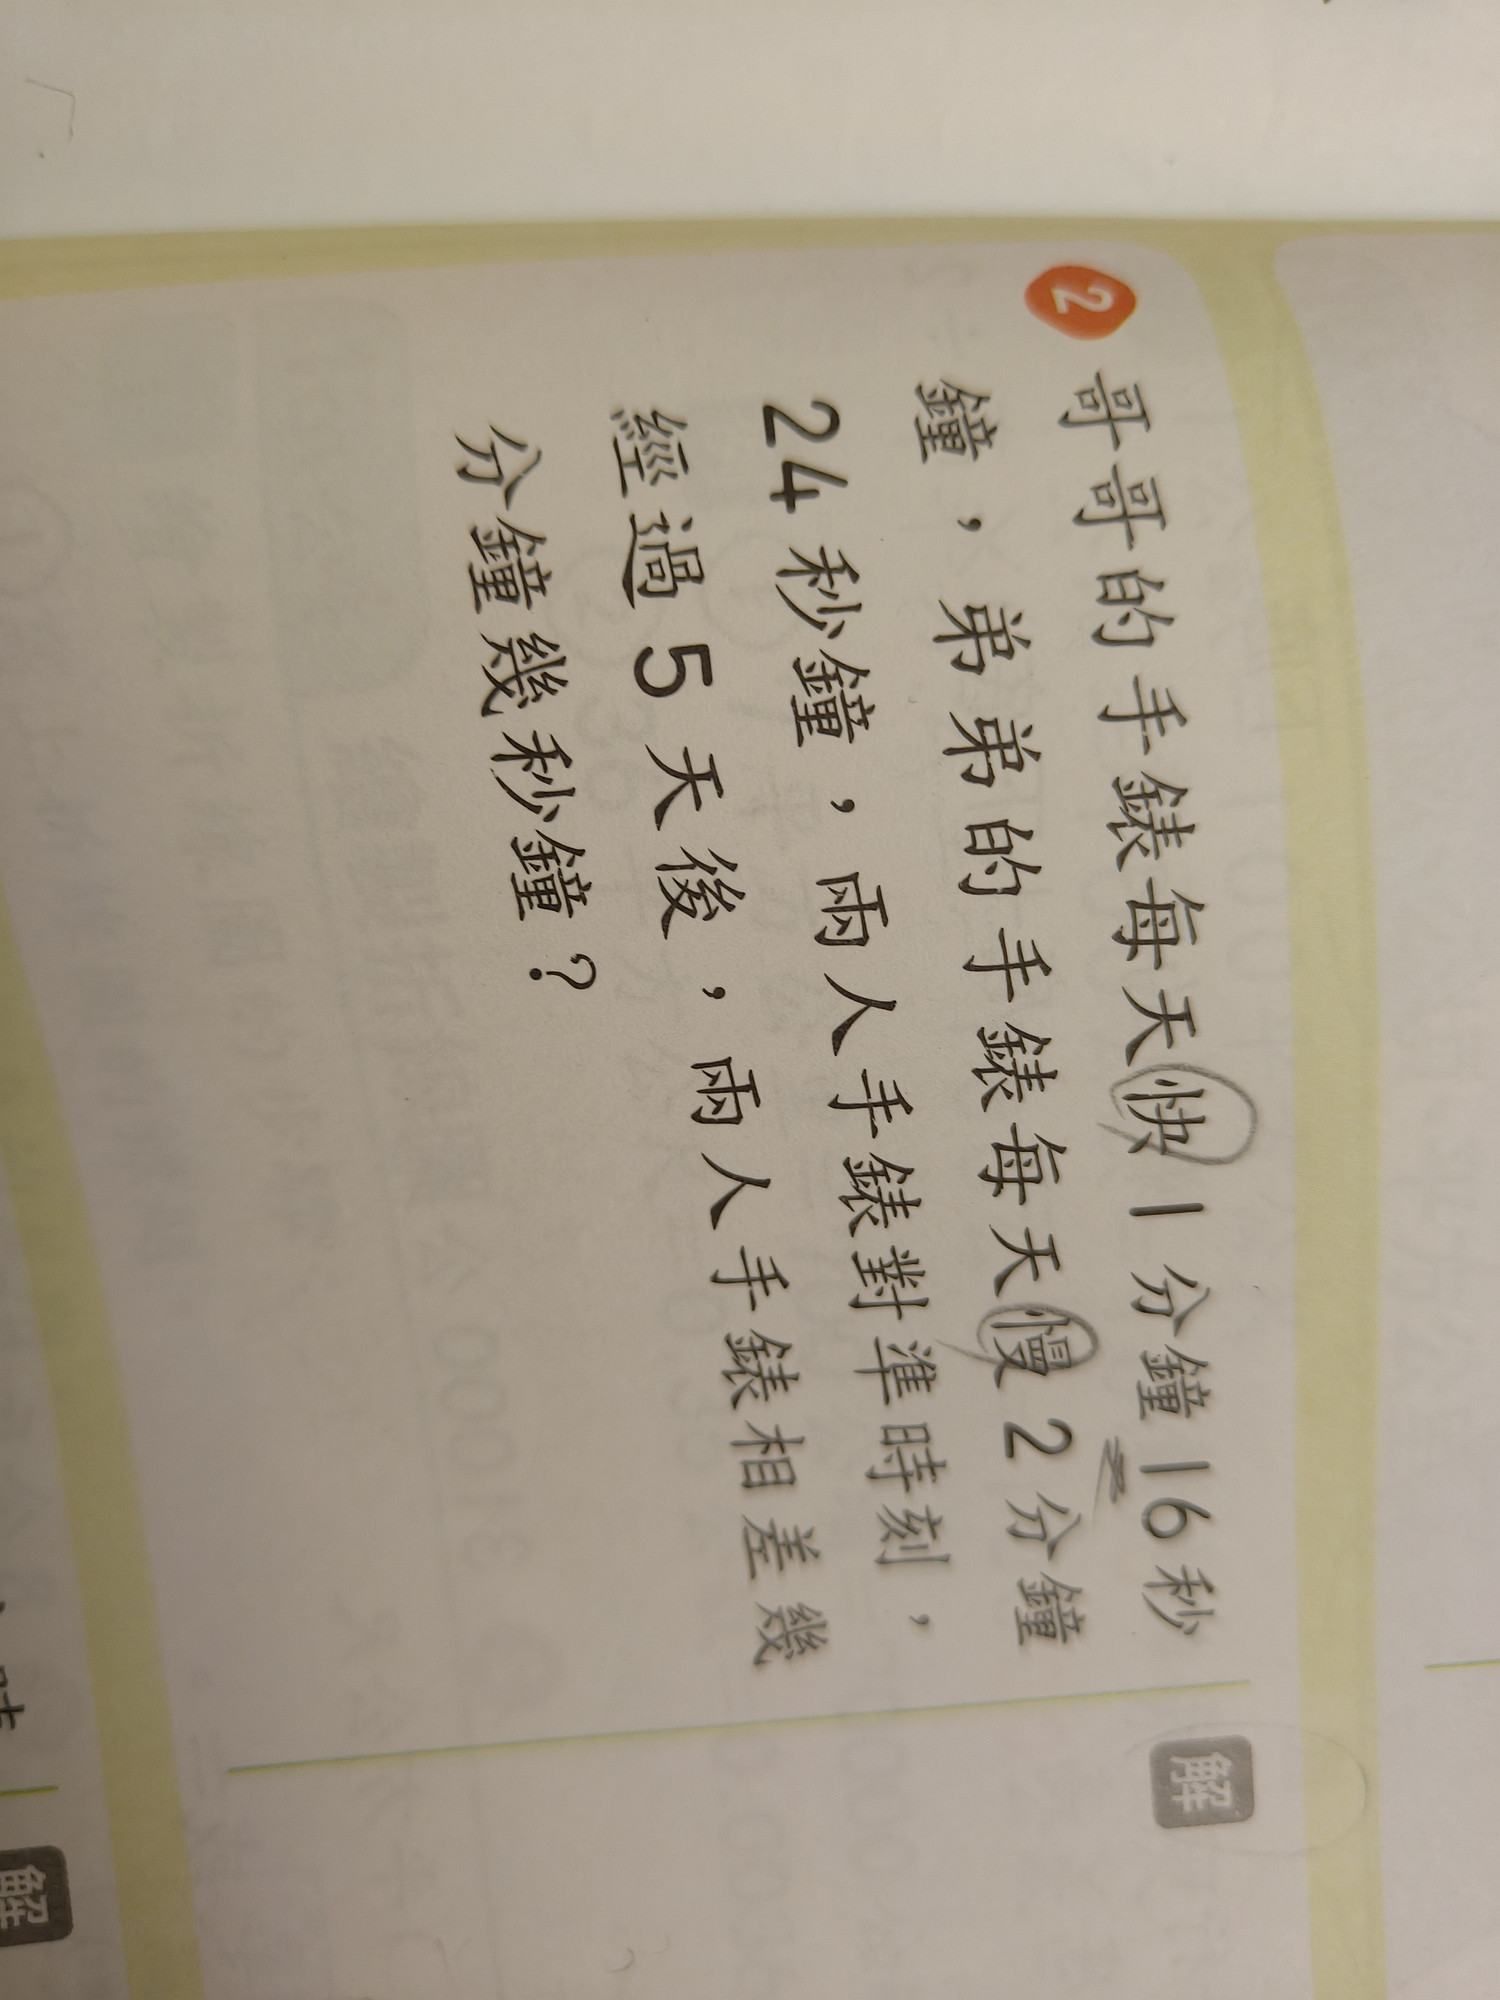 2 哥哥的手錶每天快1分鐘16秒
鐘，弟弟的手錶每天慢2分鐘
24秒鐘，兩人手錶對準時刻，
經過5天後，兩人手錶相差幾
分鐘幾秒鐘？
解
解